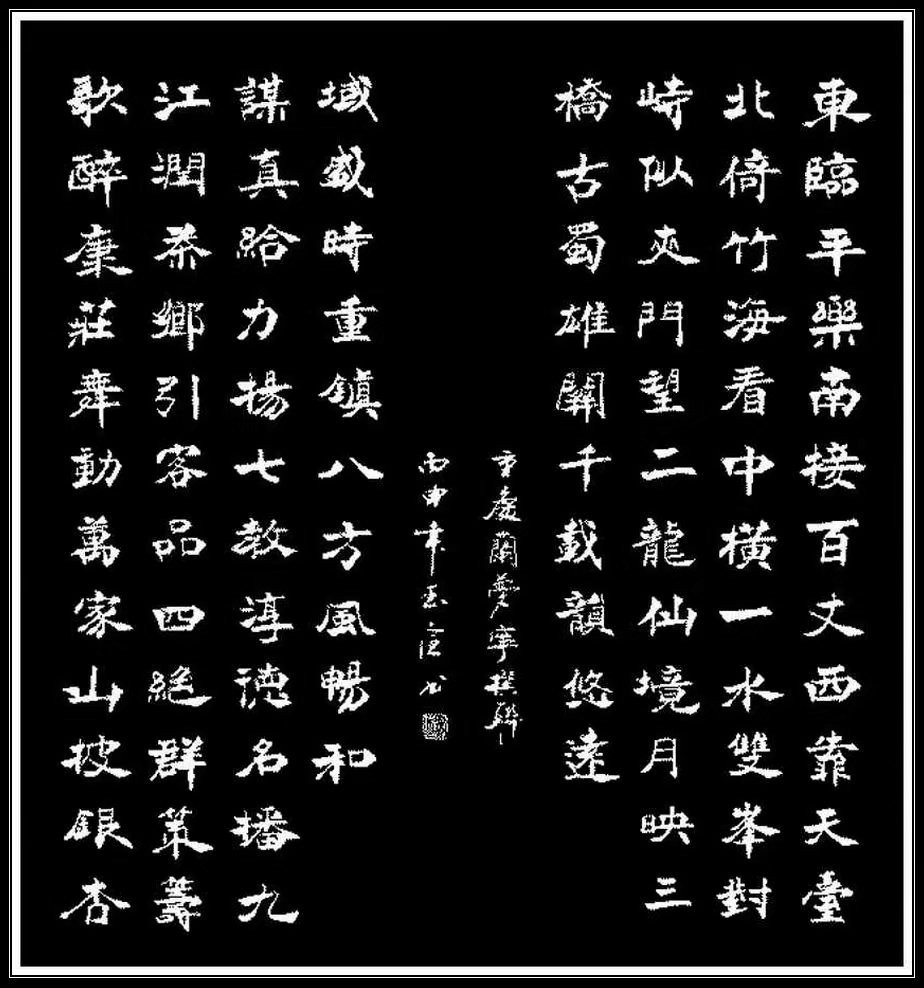 東臨平樂南接百丈西靠天臺
北倚竹海看中橫一水雙峯對
峙似夾門望二龍仙境月映三
橋古蜀雄關千載韻悠遠
歌醉康莊舞動萬家山披銀杏
江潤茶鄉引客品四絕群策籌
謀真給力揚七教淳德名播九
域盛時重鎮八方風暢和
重慶蘭夢寧撰聯
丙申年书